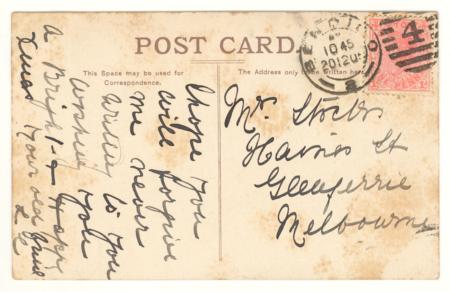 POST CARD.
This Space may be used for
Correspondence.
The Address only to be Written here.
I hope you
will forgive
me never
writing to you
Wishing you
a Bright & Happy
Xmas Your old friend
BENDIGO
10 45
20 12 0
4
Mr. Stocks
Haines St
Glenferrie
Melbourne